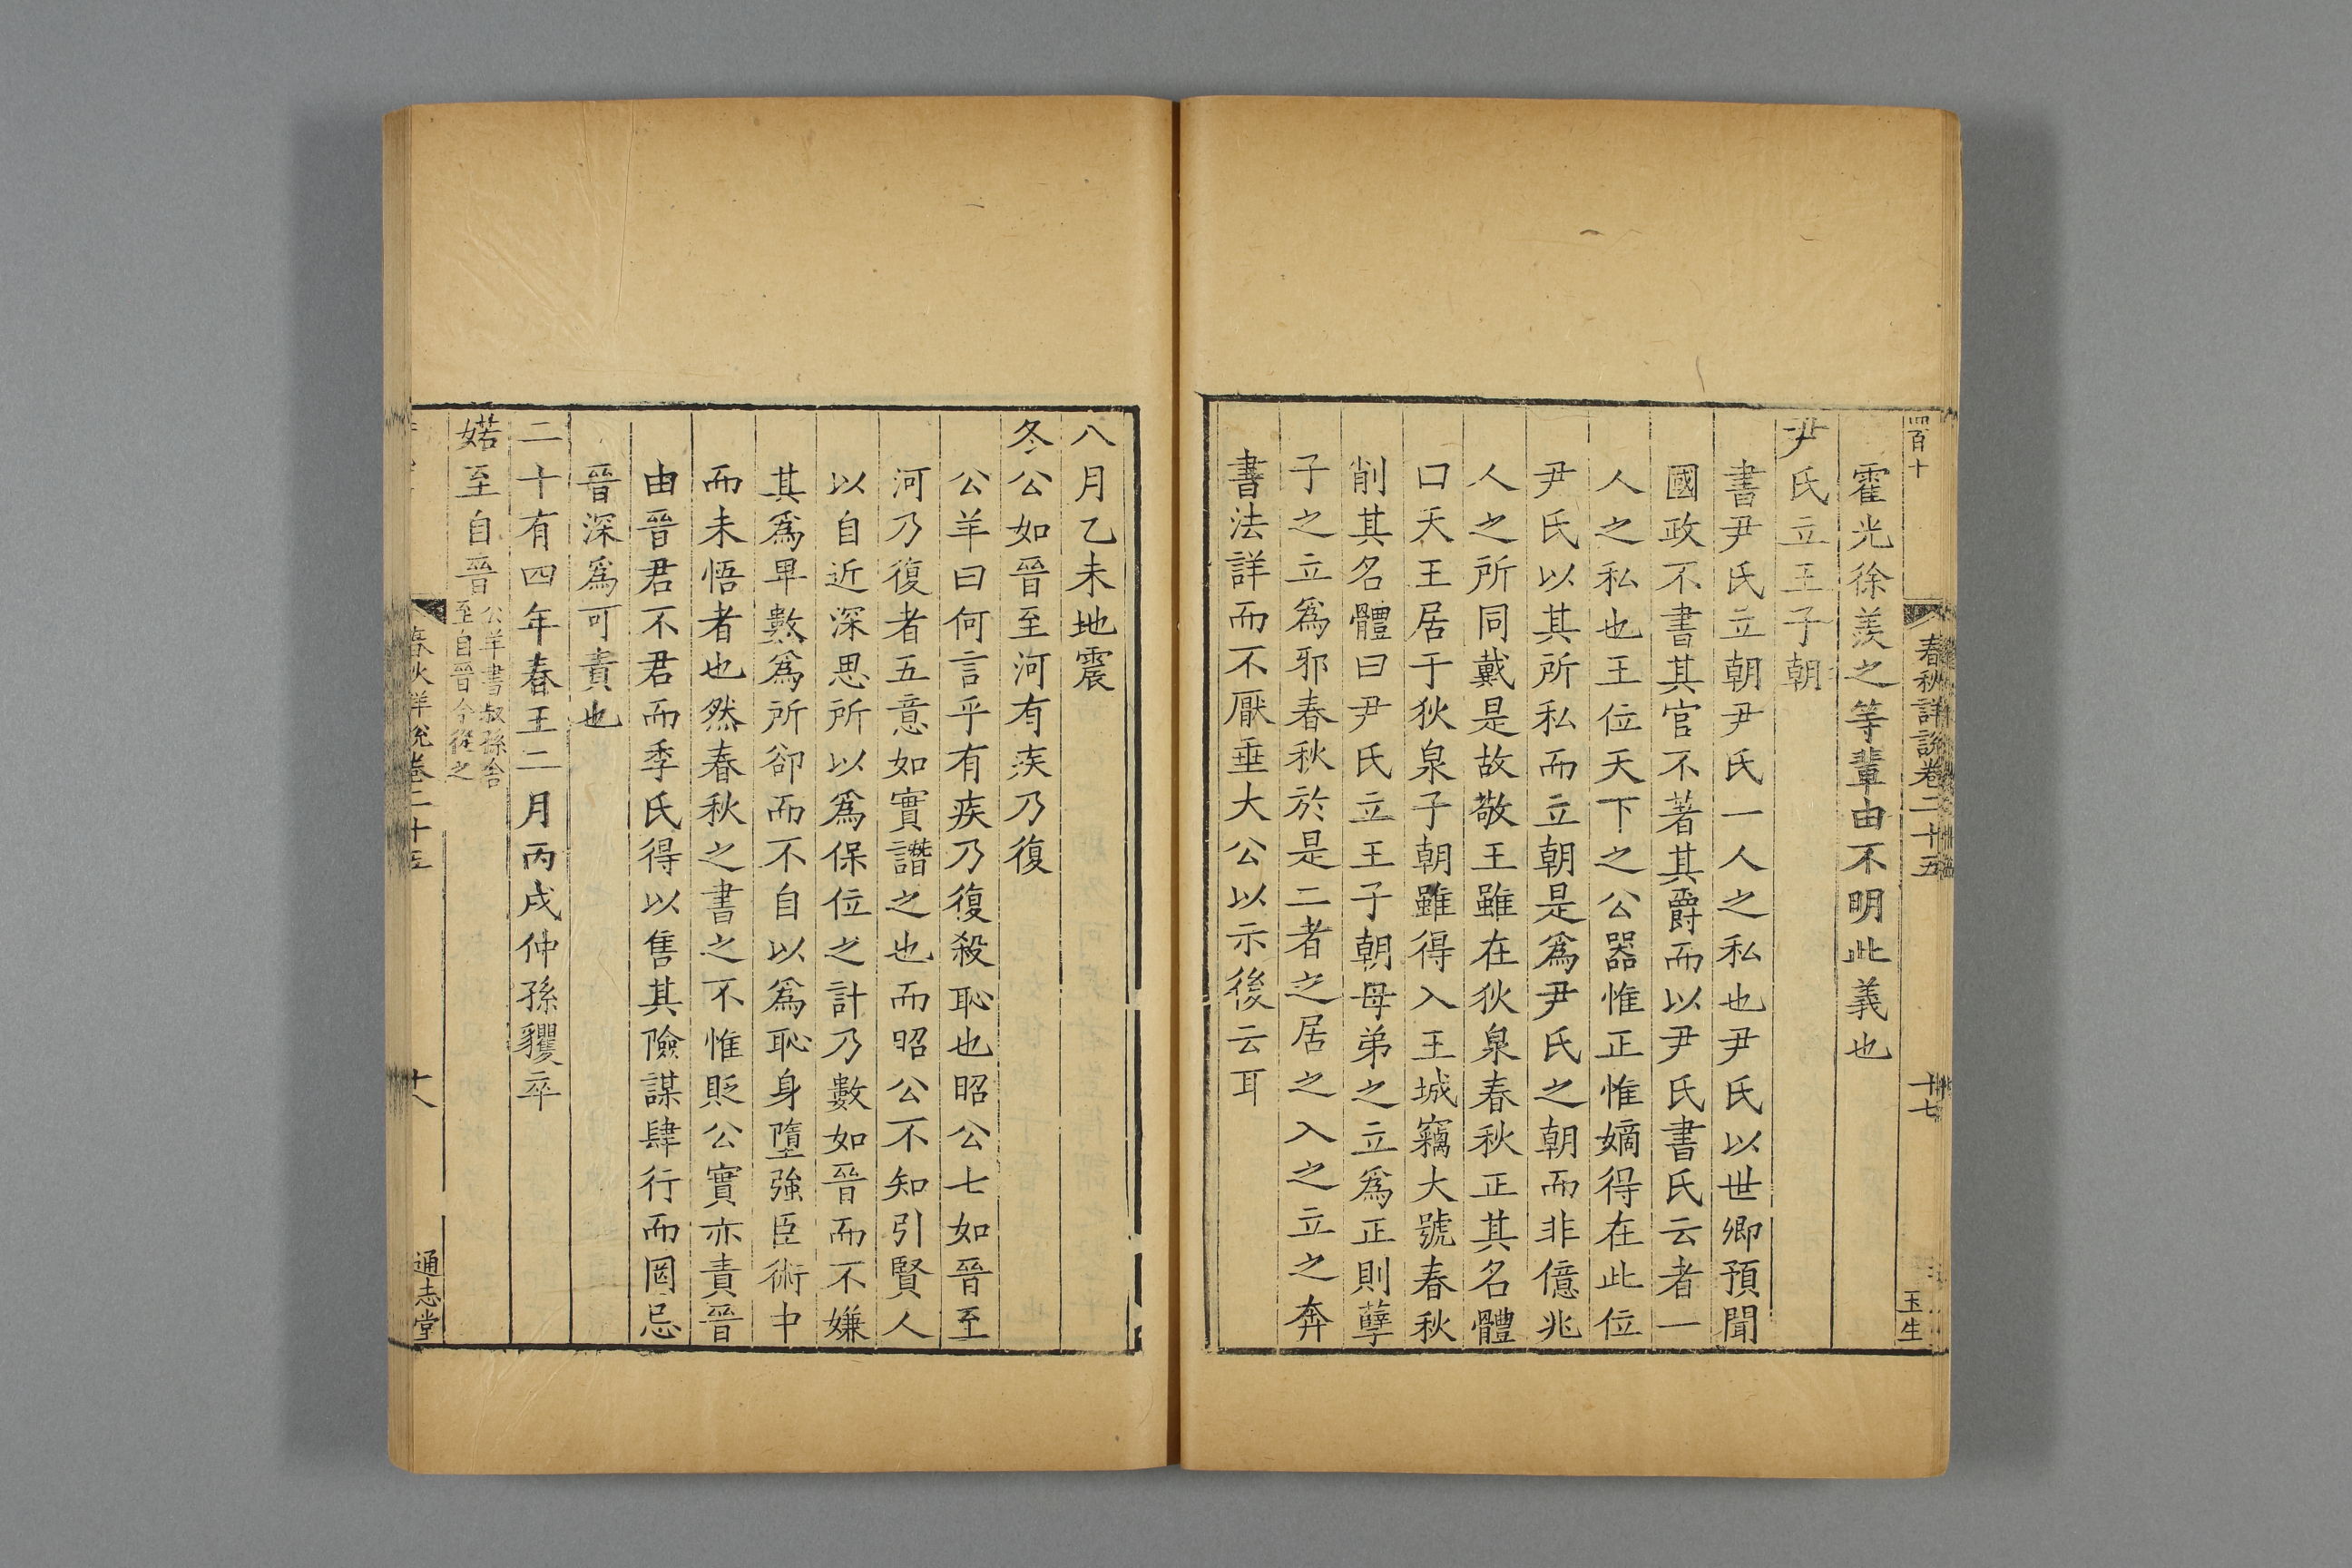 四百十
春秋詳說卷二十五
十七
玉生
霍光徐羨之等輩由不明此義也
尹氏立王子朝
書尹氏立朝尹氏一人之私也尹氏以世卿預聞
國政不書其官不著其爵而以尹氏書氏云者一
人之私也王位天下之公器惟正惟嫡得在此位
尹氏以其所私而立朝是爲尹氏之朝而非億兆
人之所同戴是故敬王雖在狄泉春秋正其名體
曰天王居于狄泉子朝雖得入王城竊大號春秋
削其名體曰尹氏立王子朝母弟之立爲正則孽
子之立爲邪春秋於是二者之居之入之立之奔
書法詳而不厭垂大公以示後云耳
八月乙未地震
冬公如晉至河有疾乃復
公羊曰何言乎有疾乃復殺恥也昭公七如晉至
河乃復者五意如實譖之也而昭公不知引賢人
以自近深思所以爲保位之計乃數如晉而不嫌
其爲卑數爲所卻而不自以爲恥身墮強臣術中
而未悟者也然春秋之書之不惟貶公實亦責晉
由晉君不君而季氏得以售其險謀肆行而罔忌
晉深爲可責也
二十有四年春王二月丙戌仲孫貜卒
婼至自晉
公羊書叔孫舍
至自晉今從之
春秋詳說卷二十五
十八
通志堂